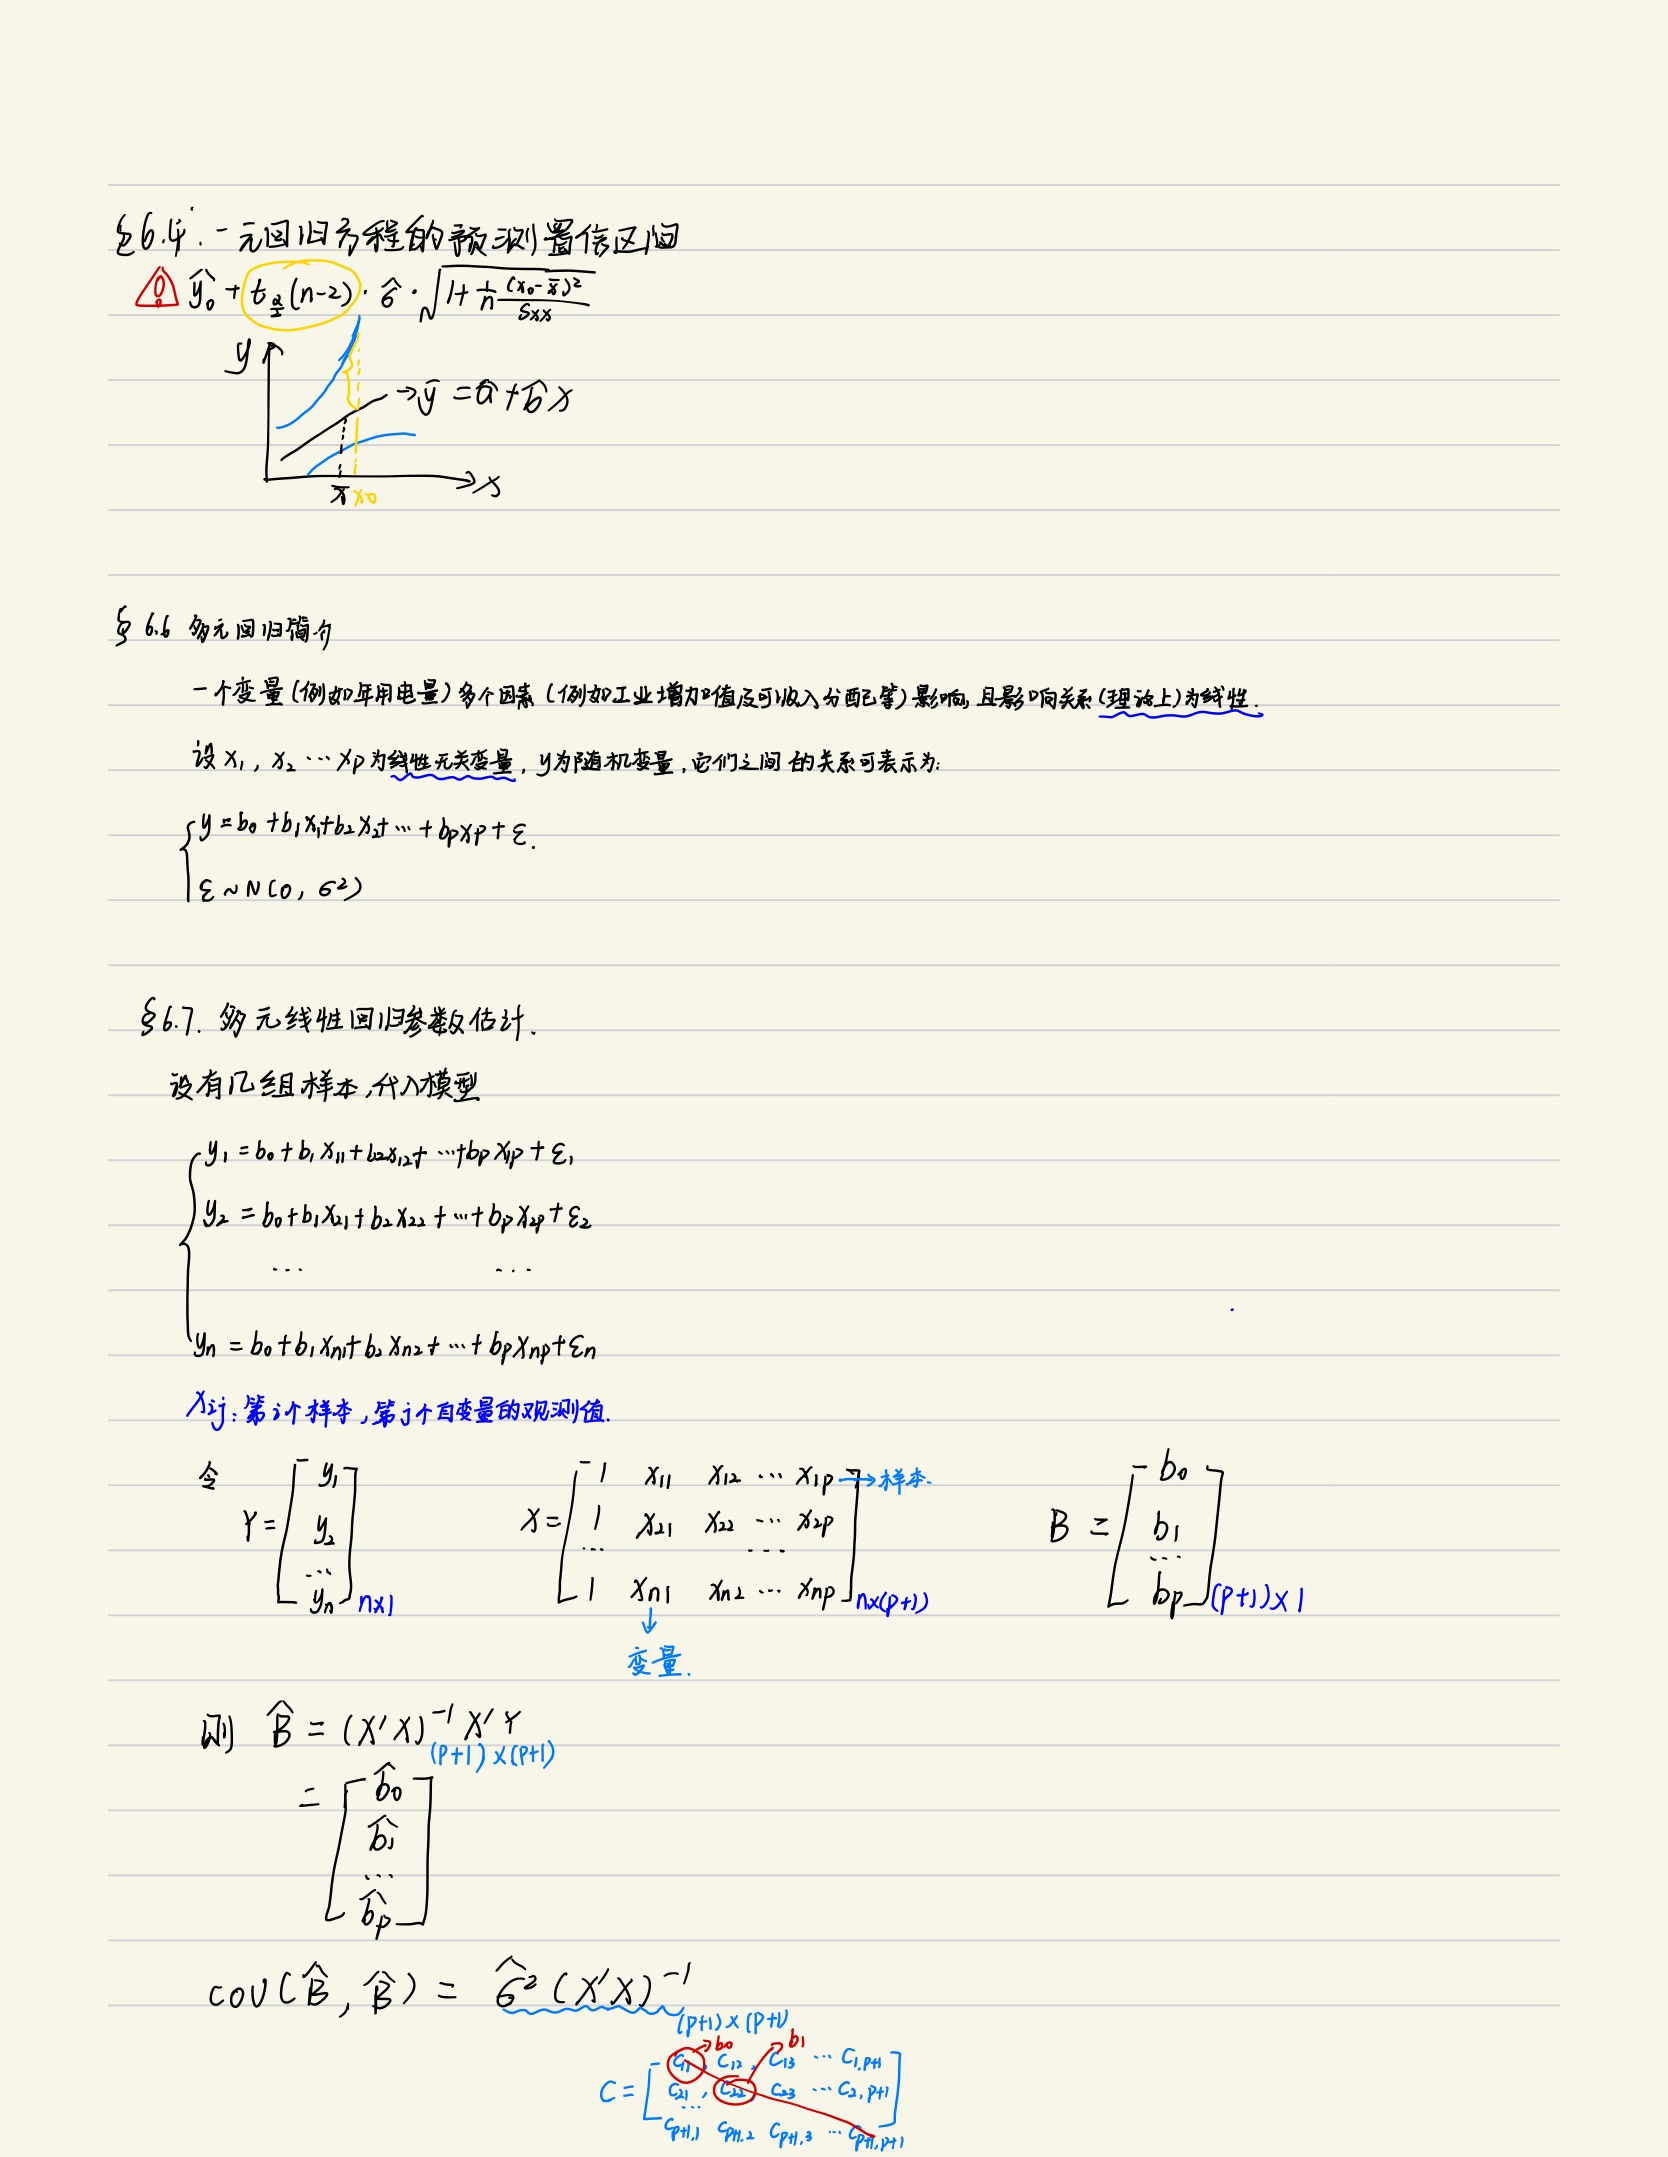 §6.4. 一元回归方程的预测置信区间
ŷ₀ + t_{α/2}(n-2)·σ̂·√(1+1/n (x₀-x̄)²/Sxx)
y
→ȳ = â+b̂x
x̄ x₀ x
§ 6.6 多元回归简介
一个变量(例如年用电量)多个因素(例如工业增加值及可收入分配等)影响,且影响关系(理论上)为线性.
设 x₁, x₂ ⋯ xp为线性无关变量, y为随机变量,它们之间的关系可表示为:
y = b₀ + b₁x₁+b₂x₂+ ⋯ + bpxp + ε.
ε ~ N(0, σ²)
§6.7. 多元线性回归参数估计.
设有几组样本,代入模型
y₁ = b₀ + b₁x₁₁ + b₂x₁₂+ ⋯+bpx₁p + ε₁
y₂ = b₀+b₁x₂₁+b₂x₂₂ + ⋯ + bpx₂p + ε₂
⋯ ⋯
yn = b₀+b₁xn₁+b₂xn₂+ ⋯ + bpxnp+εn
xij: 第i个样本,第j个自变量的观测值.
令
Y = [ y₁ y₂ ⋯ yn ] n×1
X = [ 1 x₁₁ x₁₂ ⋯ x₁p →样本.
1 x₂₁ x₂₂ ⋯ x₂p
⋯ ⋯
1 xn₁ xn₂ ⋯ xnp ] n×(p+1)
↓
变量.
B = [ b₀ b₁ ⋯ bp ] (p+1)×1
则 B̂ = (X'X)⁻¹X'Y
(p+1)×(p+1)
= [ b̂₀
b̂₁
⋯
b̂p ]
cov(B̂, B̂) = σ̂²(X'X)⁻¹
(p+1)×(p+1)
→b₀ →b₁
C = [ C₁₁, C₁₂, C₁₃ ⋯ C₁,p+1
C₂₁, C₂₂, C₂₃ ⋯ C₂,p+1
⋯
Cp+1,1 Cp+1,2 Cp+1,3 ⋯ Cp+1,p+1 ]